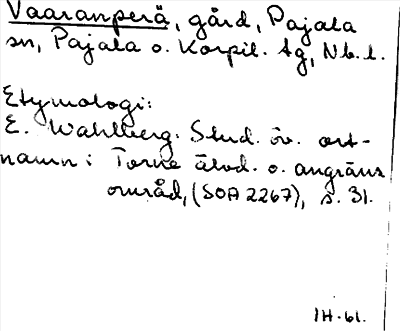 Vaaranperä, gård, Pajala
sn, Pajala o. Korpil. tg, Nb. l.
Etymologi:
E. Wahlberg. Stud. öv. ort-
namn i Torne älvd. o. angräns
område, (SOA 2267), s. 31.
IH-61.